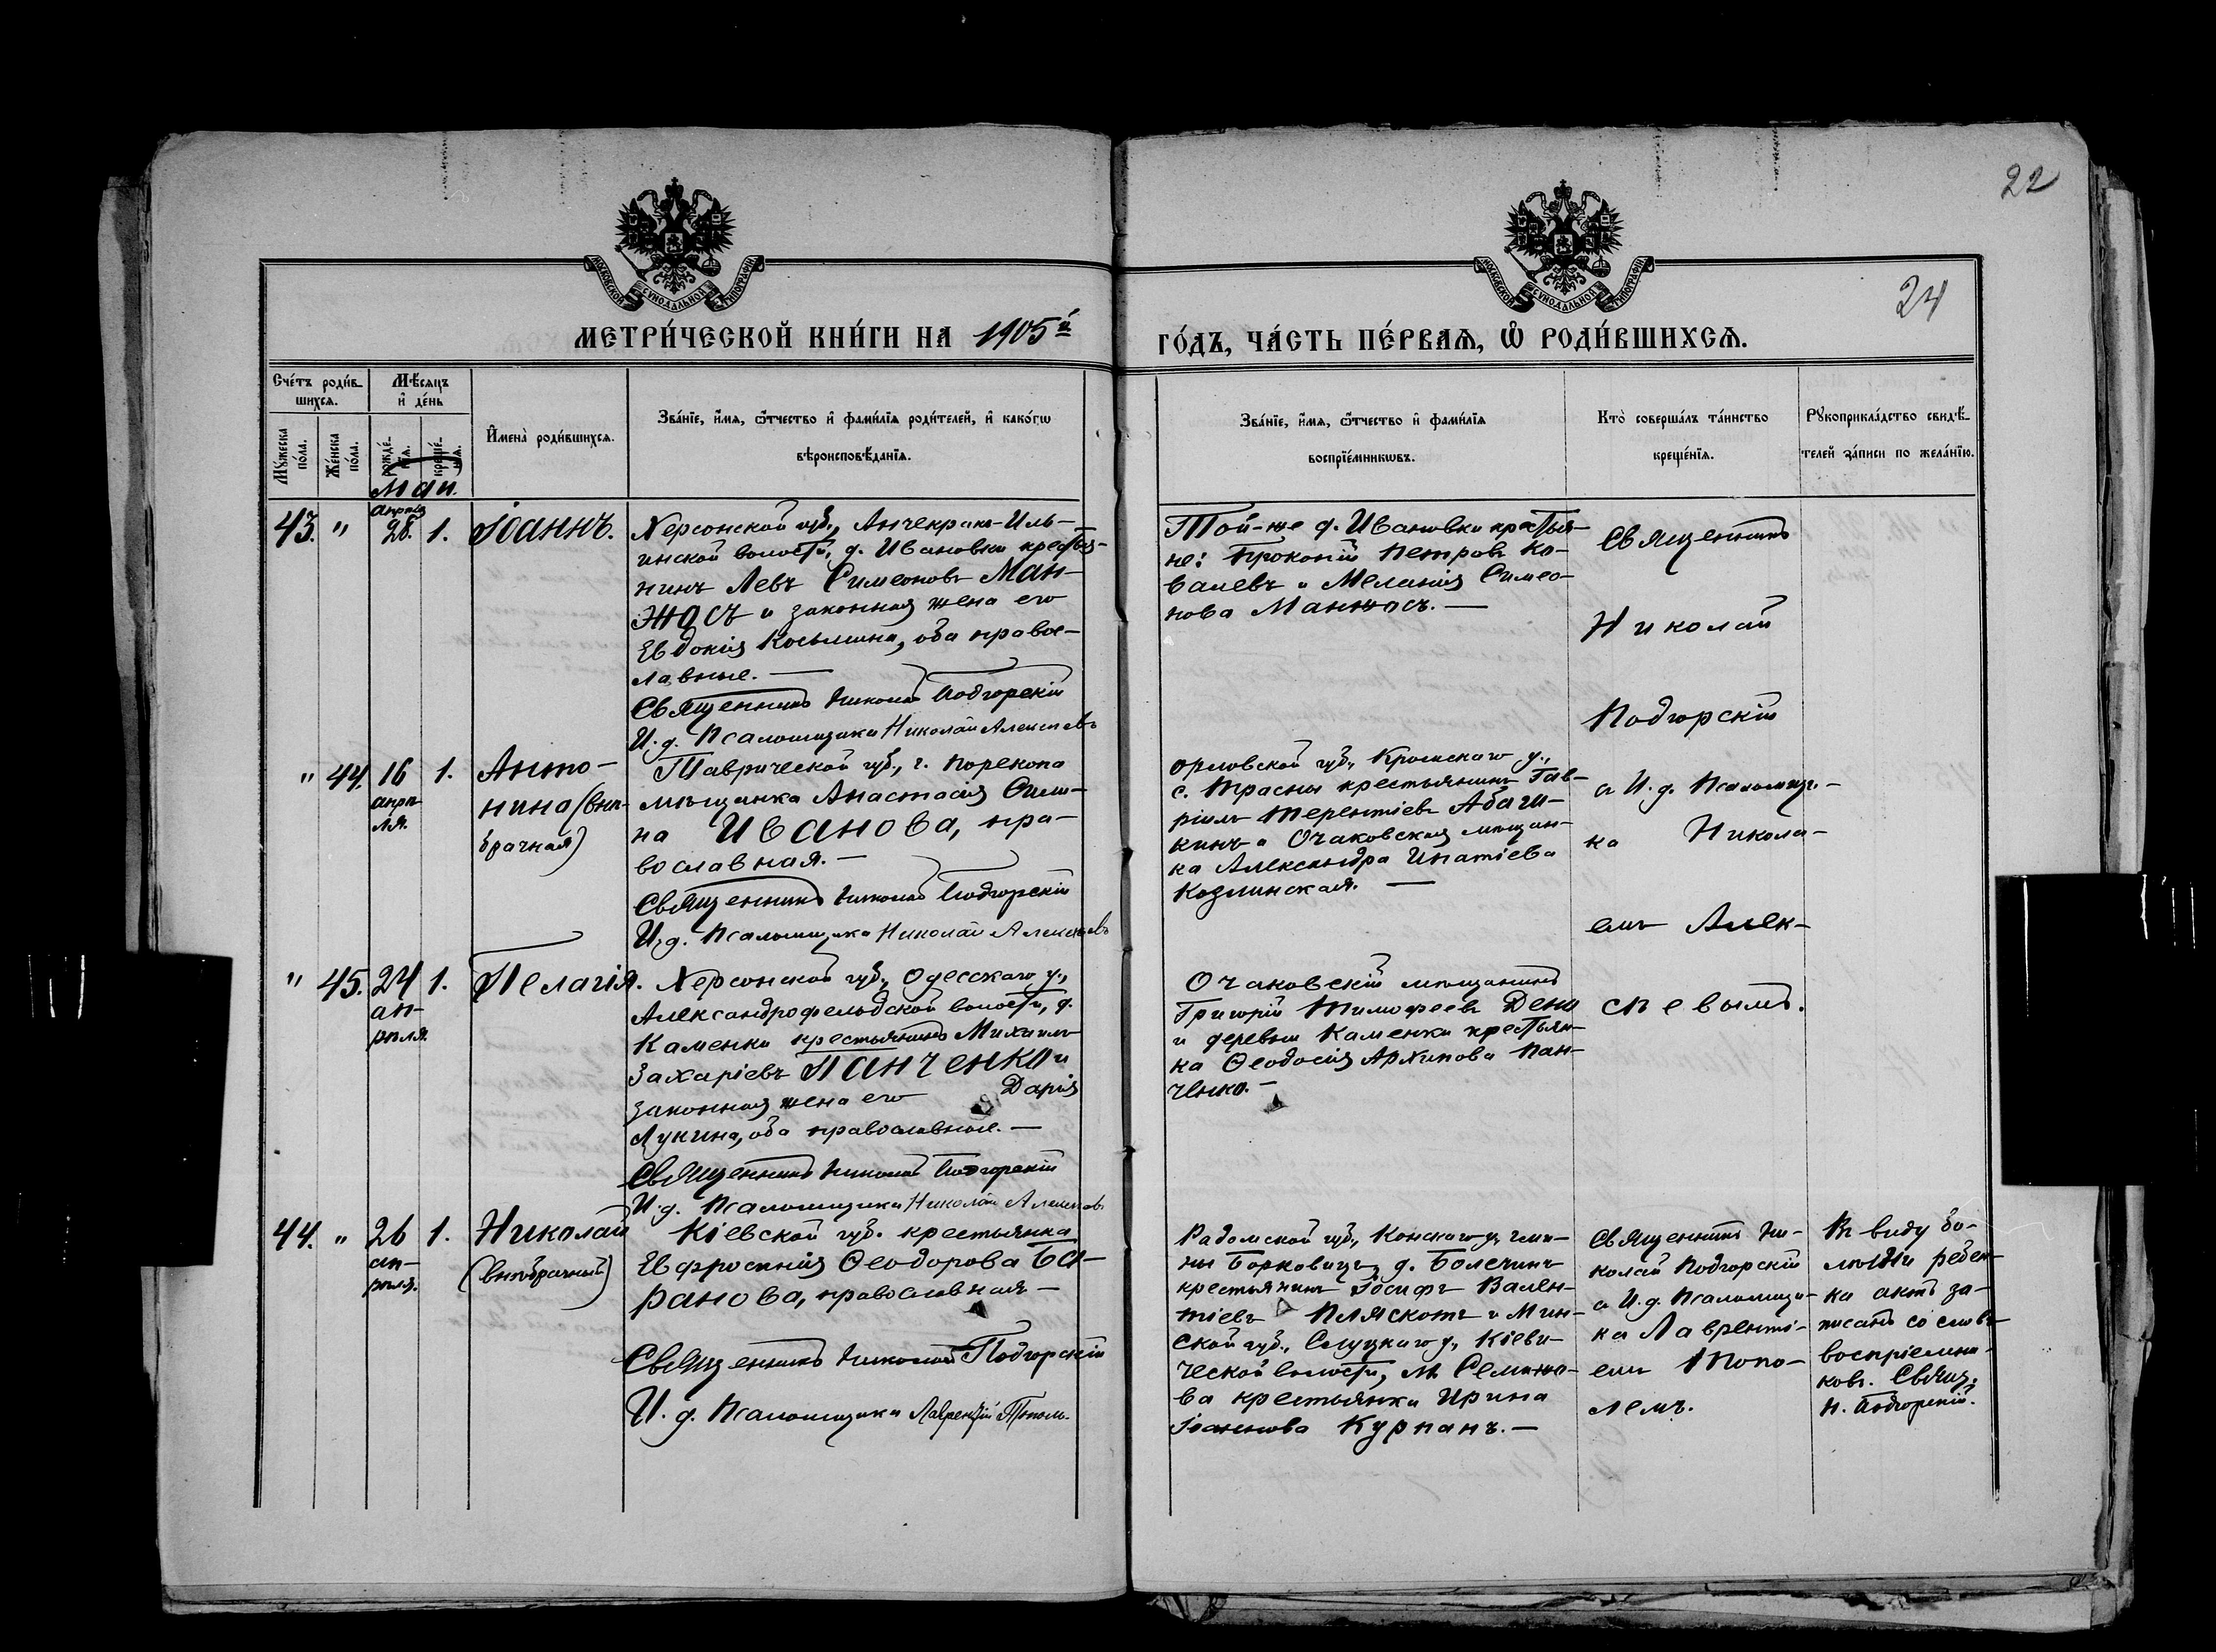 22
24
МОСКОВСКОЙ СѴНОДАЛЬНОЙ ТИПОГРАФІИ
МОСКОВСКОЙ СѴНОДАЛЬНОЙ ТИПОГРАФІИ
МЕТРИ́ЧЕСКОЙ КНИ́ГИ НА 1905й ГО́ДЪ, ЧА́СТЬ ПЕ́РВАѦ, Ѽ РОДИ́ВШИХСѦ.
Сче́тъ роди́в-
шихсѧ.
Мꙋ́жеска
по́ла.
Же́нска
по́ла.
Мѣ́сѧцъ
и҆ де́нь
рожде́-
нїѧ.
креще́-
нїѧ.
Маи.
И҆мена̀ роди́вшихсѧ.
Зва́нїе, и҆́мѧ, ѻ҆́тчество и҆ фами́лїѧ роди́телей, и҆ како́гѡ
вѣроисповѣ́данїѧ.
Зва́нїе, и҆́мѧ, ѻ҆́тчество и҆ фами́лїѧ
воспрїе́мникѡвъ.
Кто̀ соверша́лъ та́инство
креще́нїѧ.
Рꙋкоприкла́дство свидѣ́-
телей за́писи по жела́нїю.
43. " апрѣля 28. 1. Іоаннъ.
Херсонской губ., Анчекрако-Иль-
инской волости, д. Ивановки крестья-
нинъ Левъ Симеоновъ Ман-
жосъ и законная жена его
Евдокія Косьмина, оба правос-
лавные. —
Священникъ Николай Подгорскій
И. д. Псаломщика Николай Алексѣевъ
Той-же д. Ивановки крестья-
не: Прокопій Петровъ Ко-
валевъ и Меланія Симео-
нова Манжосъ. —
Священникъ
Николай
Подгорскій
с И. д. Псаломщи-
ка Никола-
емъ Алек-
сѣевымъ.
" 44. 16 апрѣ-
ля. 1. Анто-
нина (внѣ-
брачная)
Таврической губ., г. Перекопа
мѣщанка Анастасія
на Иванова, пра-
вославная. —
Священникъ Николай Подгорскій
И. д. Псаломщика Николай Алексѣевъ
Орловской губ., Кромскаго у.,
с. Трасны крестьянинъ Гав-
ріилъ Терентіевъ
кинъ и Очаковская мѣщан-
ка Александра Игнатіева
Козлинская. —
" 45. 24 ап-
рѣля. 1. Пелагія.
Херсонской губ., Одесскаго у.,
Александрофельдской волости, д.
Каменки крестьянинъ Михаилъ
Захаріевъ Панченко и
законная жена его Дарія
Лукина, оба православные. —
Священникъ Николай Подгорскій
И. д. Псаломщика Николай Алексѣевъ
Очаковскій мѣщанинъ
Григорій Тимофеевъ
и деревни Каменки крестьян-
ка Ѳеодосія Архипова Пан-
ченко. —
44. " 26 ап-
рѣля. 1. Николай
(внѣбрачный)
Кіевской губ. крестьянка
Евфросинія Ѳеодорова Ба-
ранова, православная —
Священникъ Николай Подгорскій
И. д. Псаломщика Лаврентій Тополь.
Радомской губ., Конскаго у, гми-
ны Борковице, д. Болечинъ
крестьянинъ Іосифъ Вален-
тіевъ Пляскотъ и Мин-
ской губ., Слуцкаго у., Кіеви-
ческой волости, м.
ва крестьянка Ирина
Іоаннова Курпанъ. —
Священникъ Ни-
колай Подгорскій
с И. д. Псаломщи-
ка Лавренті-
емъ Топо-
лемъ.
Въ виду бо-
лѣзни ребен-
ка актъ за-
писанъ со словъ
воспріемни-
ковъ. Свящ.
Н. Подгорскій.